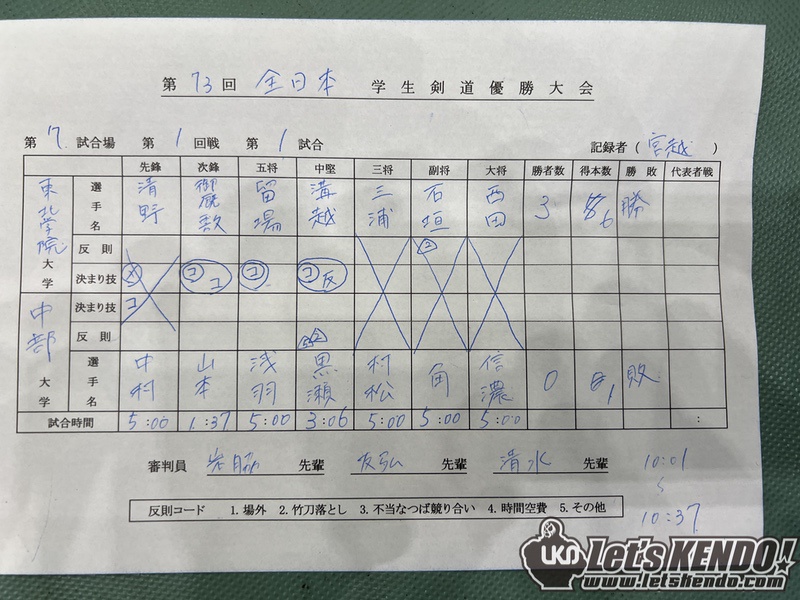 第 73 回 全日本 学生剣道優勝大会
第 7 試合場 第 1 回戦 第 1 試合 記録者 ( 宮越 )
先鋒 次鋒 五将 中堅 三将 副将 大将 勝者数 得本数 勝敗 代表者戦
東北学院大学 選手名 清野 御厩敷 留場 溝越 三浦 石垣 西田 3 6 勝
反則 ③
決まり技 メ コ コ コ コ 反
中部大学 決まり技 コ
反則
選手名 中村 山本 浅羽 黒瀬 村松 角 信濃 0 1 敗
試合時間 5:00 1:37 5:00 3:06 5:00 5:00 5:00 :
審判員 岩脇 先輩 友弘 先輩 清水 先輩
10:01
10:37
反則コード 1. 場外 2. 竹刀落とし 3. 不当なつば競り合い 4. 時間空費 5. その他
LKN Let's KENDO!
www.letskendo.com